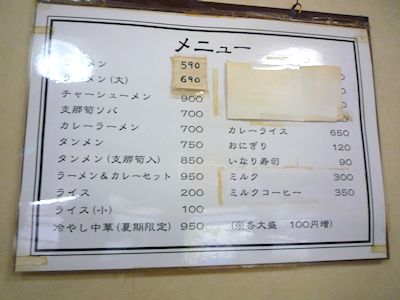 メニュー
ラーメン 590
ラーメン(大) 690
チャーシューメン 900
支那筍ソバ 700
カレーラーメン 700
タンメン 750
タンメン(支那筍入) 850
ラーメン&カレーセット 950
ライス 200
ライス(小) 100
冷やし中華(夏期限定) 950
カレーライス 650
おにぎり 120
いなり寿司 90
ミルク 300
ミルクコーヒー 350
(※各大盛 100円増)